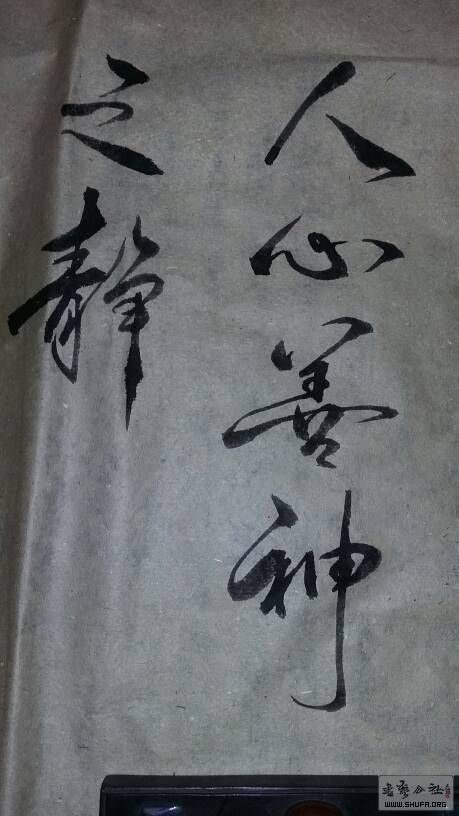 人心善神
之静
書艺公社
WWW.SHUFA.ORG